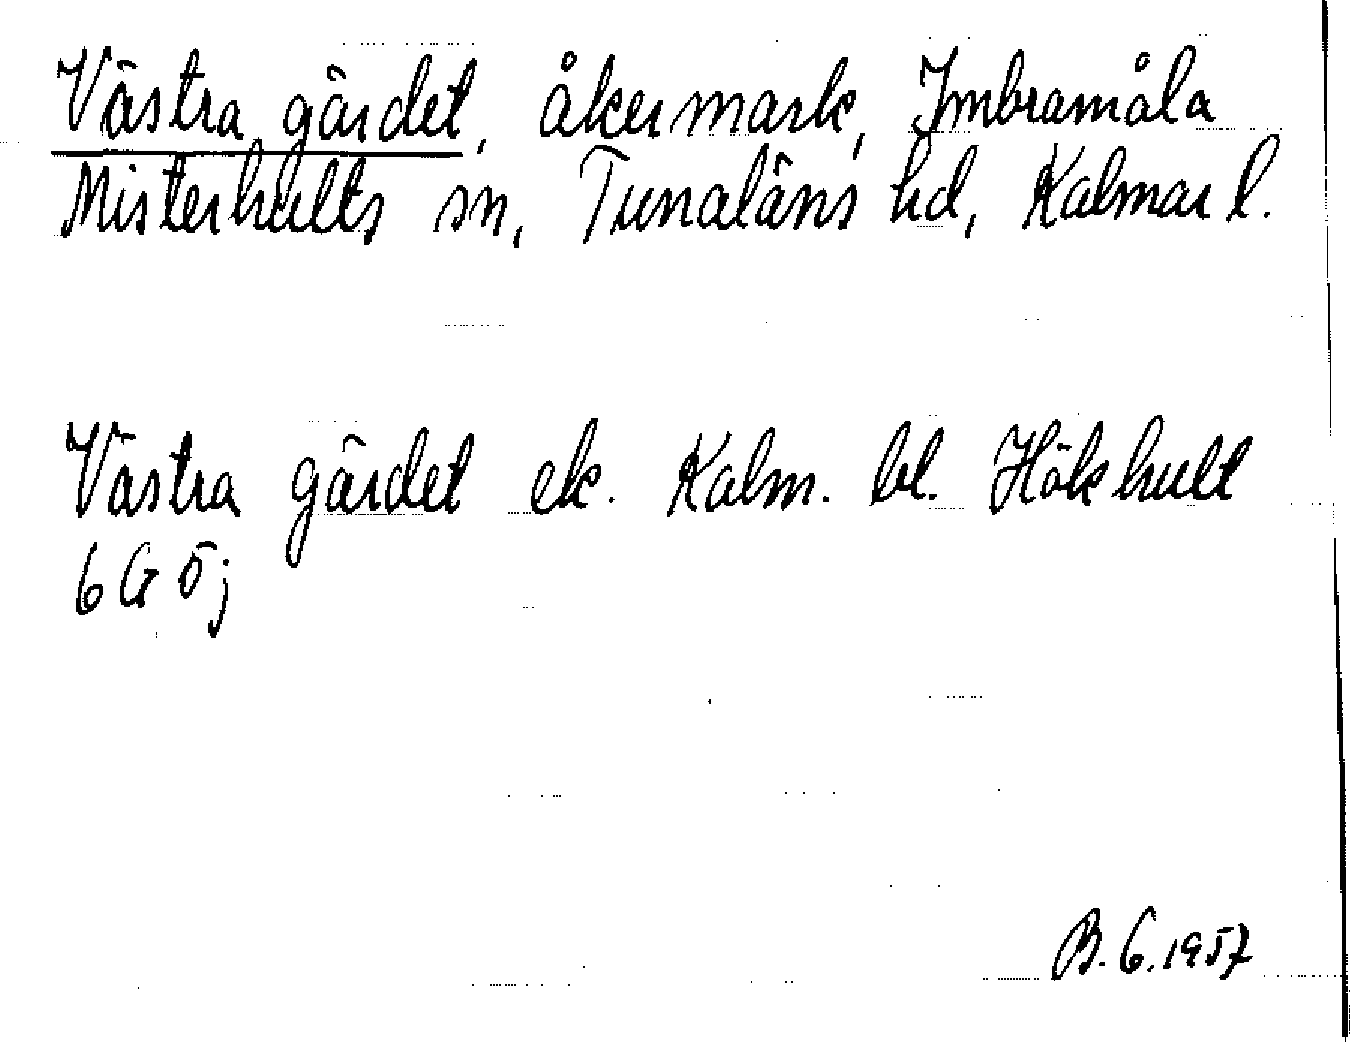 Västra gärdet, åkermark, Imbramåla
Misterhults sn, Tunaläns hd, Kalmar l.
Västra gärdet ek. Kalm. bl. Hökhult
6 G ö j
B. G. 1957